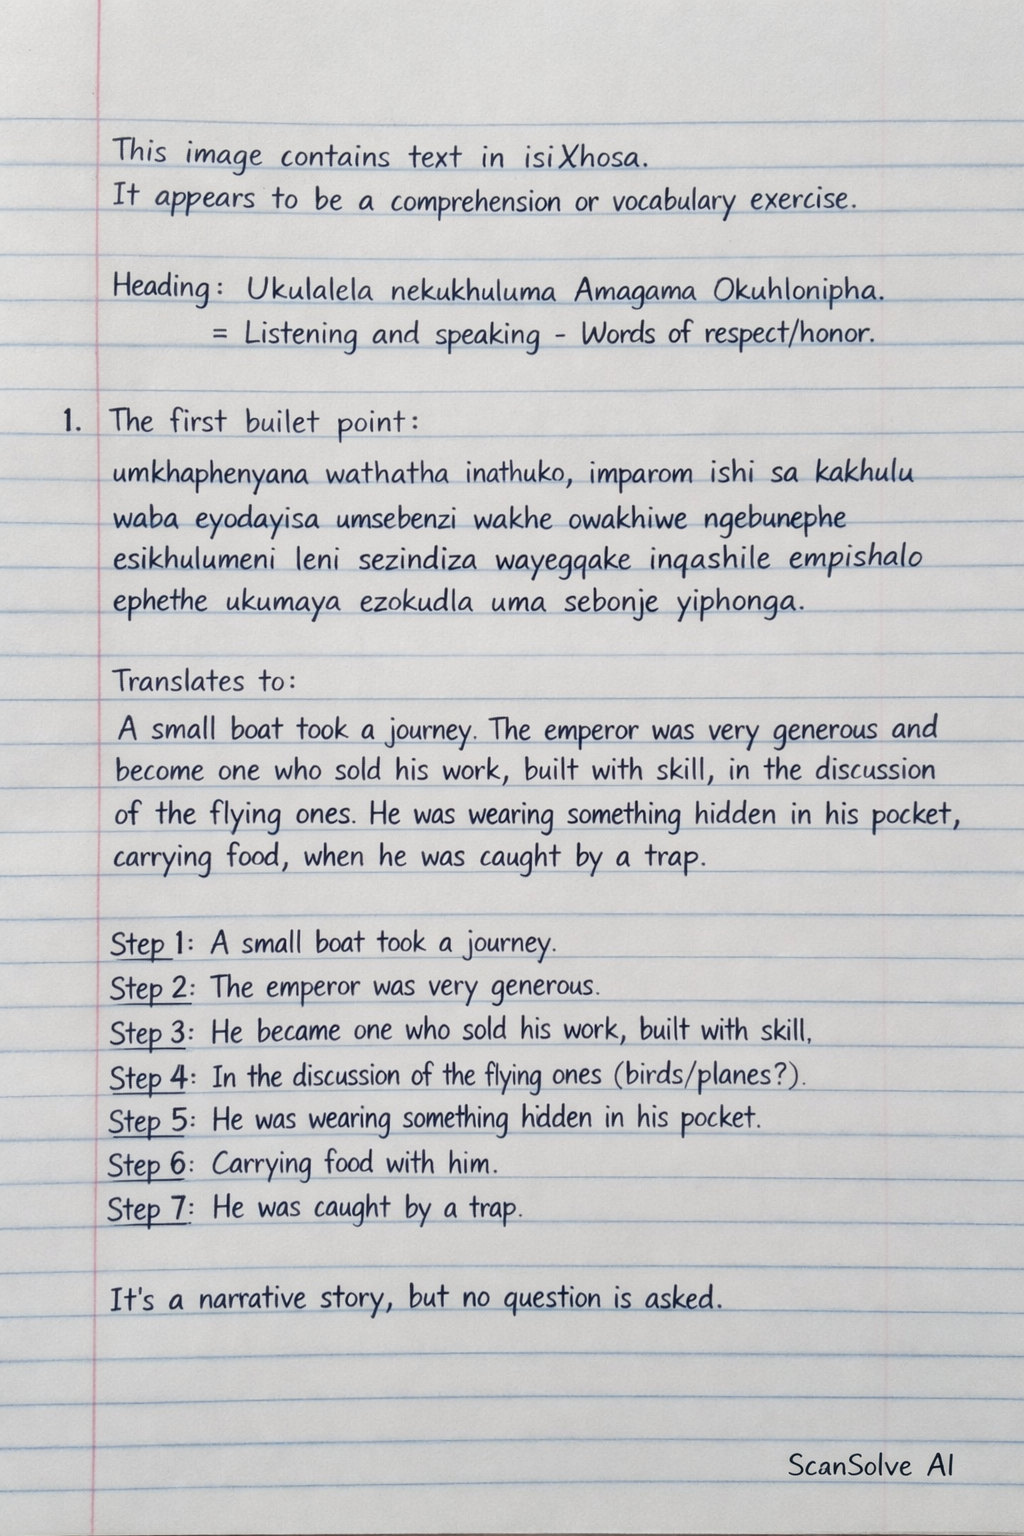 This image contains text in isiXhosa.
It appears to be a comprehension or vocabulary exercise.
Heading: Ukulalela nekukhuluma Amagama Okuhlonipha.
= Listening and speaking - Words of respect/honor.
1. The first builet point:
umkhaphenyana wathatha inathuko, imparom ishi sa kakhulu
waba eyodayisa umsebenzi wakhe owakhiwe ngebunephe
esikhulumeni leni sezindiza wayegqake inqashile empishalo
ephethe ukumaya ezokudla uma sebonje yiphonga.
Translates to:
A small boat took a journey. The emperor was very generous and
become one who sold his work, built with skill, in the discussion
of the flying ones. He was wearing something hidden in his pocket,
carrying food, when he was caught by a trap.
Step 1: A small boat took a journey.
Step 2: The emperor was very generous.
Step 3: He became one who sold his work, built with skill,
Step 4: In the discussion of the flying ones (birds/planes?).
Step 5: He was wearing something hidden in his pocket.
Step 6: Carrying food with him.
Step 7: He was caught by a trap.
It's a narrative story, but no question is asked.
ScanSolve AI